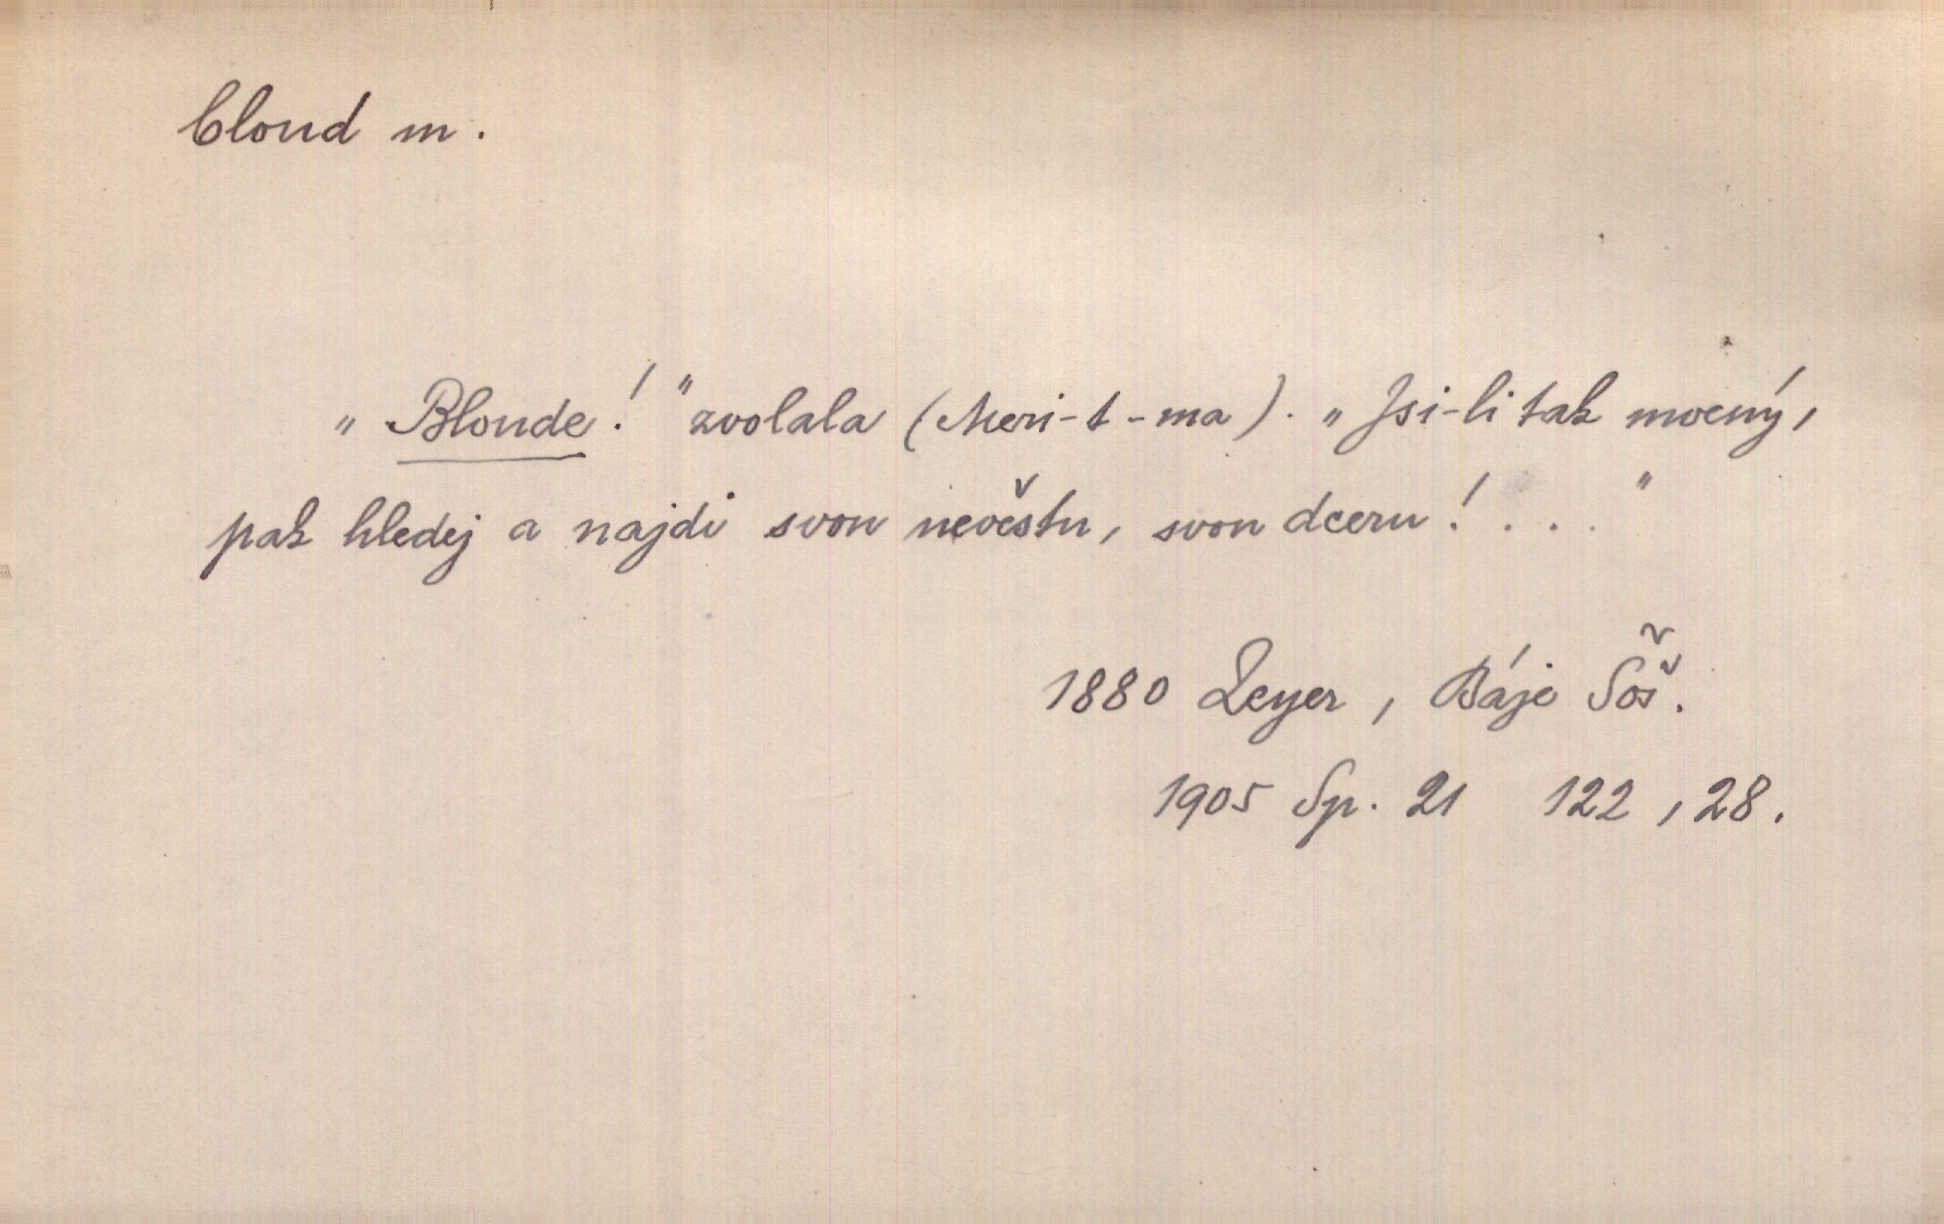 bloud m.
„Bloude!" zvolala (Meri-t-ma). „Jsi-li tak mocný,
pak hledej a najdi svou nevěstu, svou dceru!..."
1880 Zeyer, Báje Šoš.
1905 Sp. 21 122, 28.